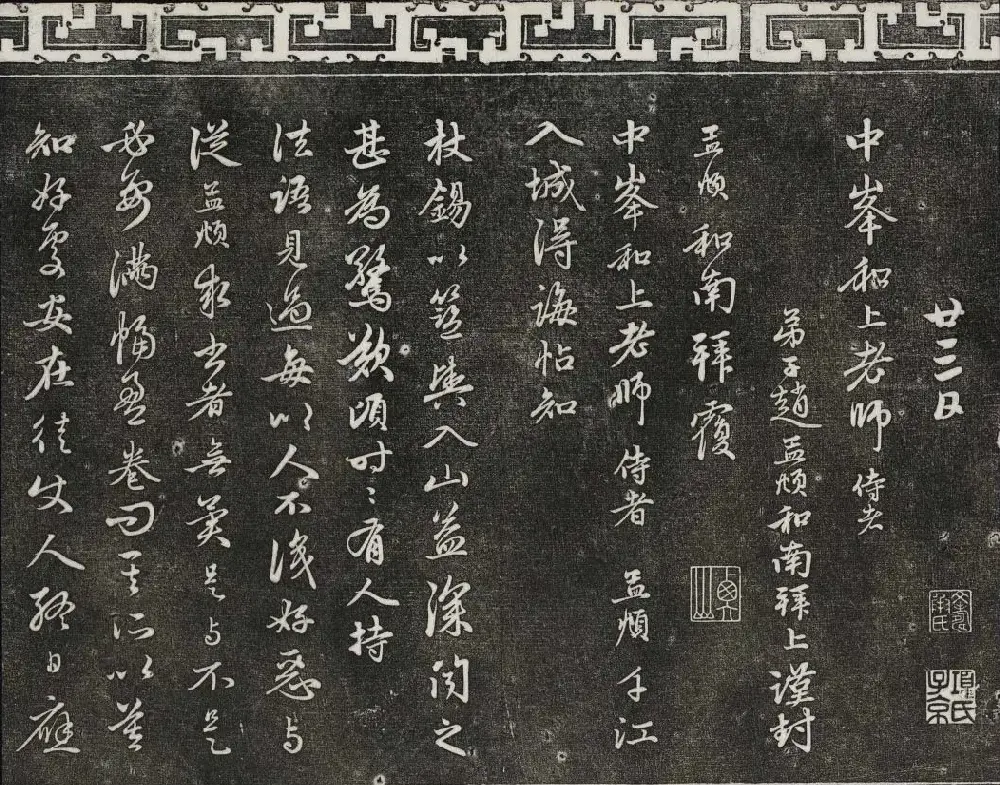 廿三日
中峯和上老師侍者
弟子趙孟頫和南拜上謹封
孟頫和南拜覆
中峯和上老師侍者孟頫千江
入城得誨帖知
杖錫以籃輿入山益深聞之
甚為驚歎頃時〻有人持
法語見過每以人不識好惡与
從孟頫求書者無異是与不是
必要滿幅盈卷問其所以莫
知好處安在徒使人終日應
項氏子京